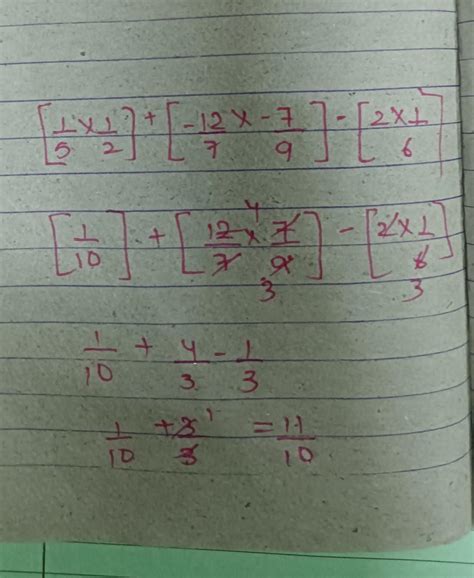 [1/5 × 1/2] + [-12/7 × -7/9] - [2 × 1/6]
[1/10] + [12/7 × 7/9] - [2 × 1/6]
4 3 3
1/10 + 4/3 - 1/3
1/10 + 3/3 1 = 11/10